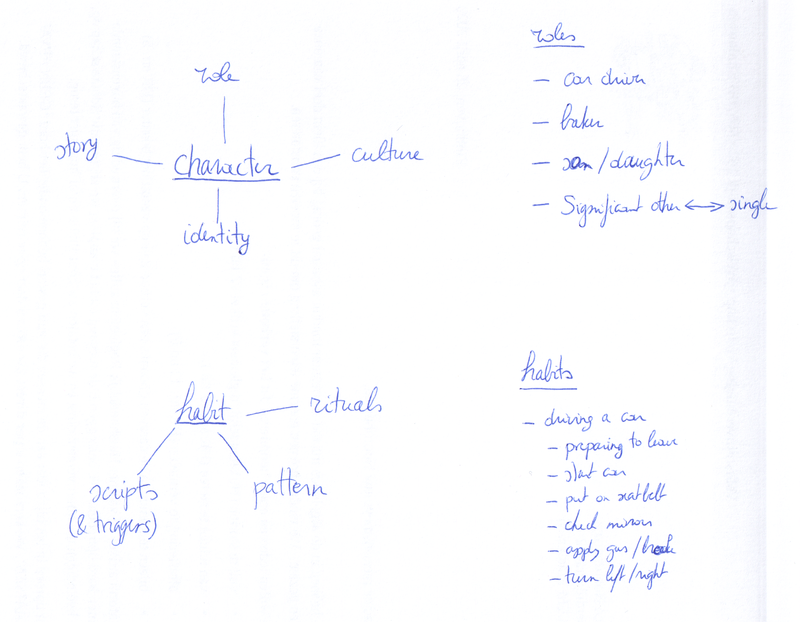 role
story
character
culture
identity
roles
- car driver
- baker
- son/daughter
- Significant other <-> single
habit
rituals
scripts
(& triggers)
pattern
habits
- driving a car
- preparing to leave
- start car
- put on seatbelt
- check mirrors
- apply gas/break
- turn left/right